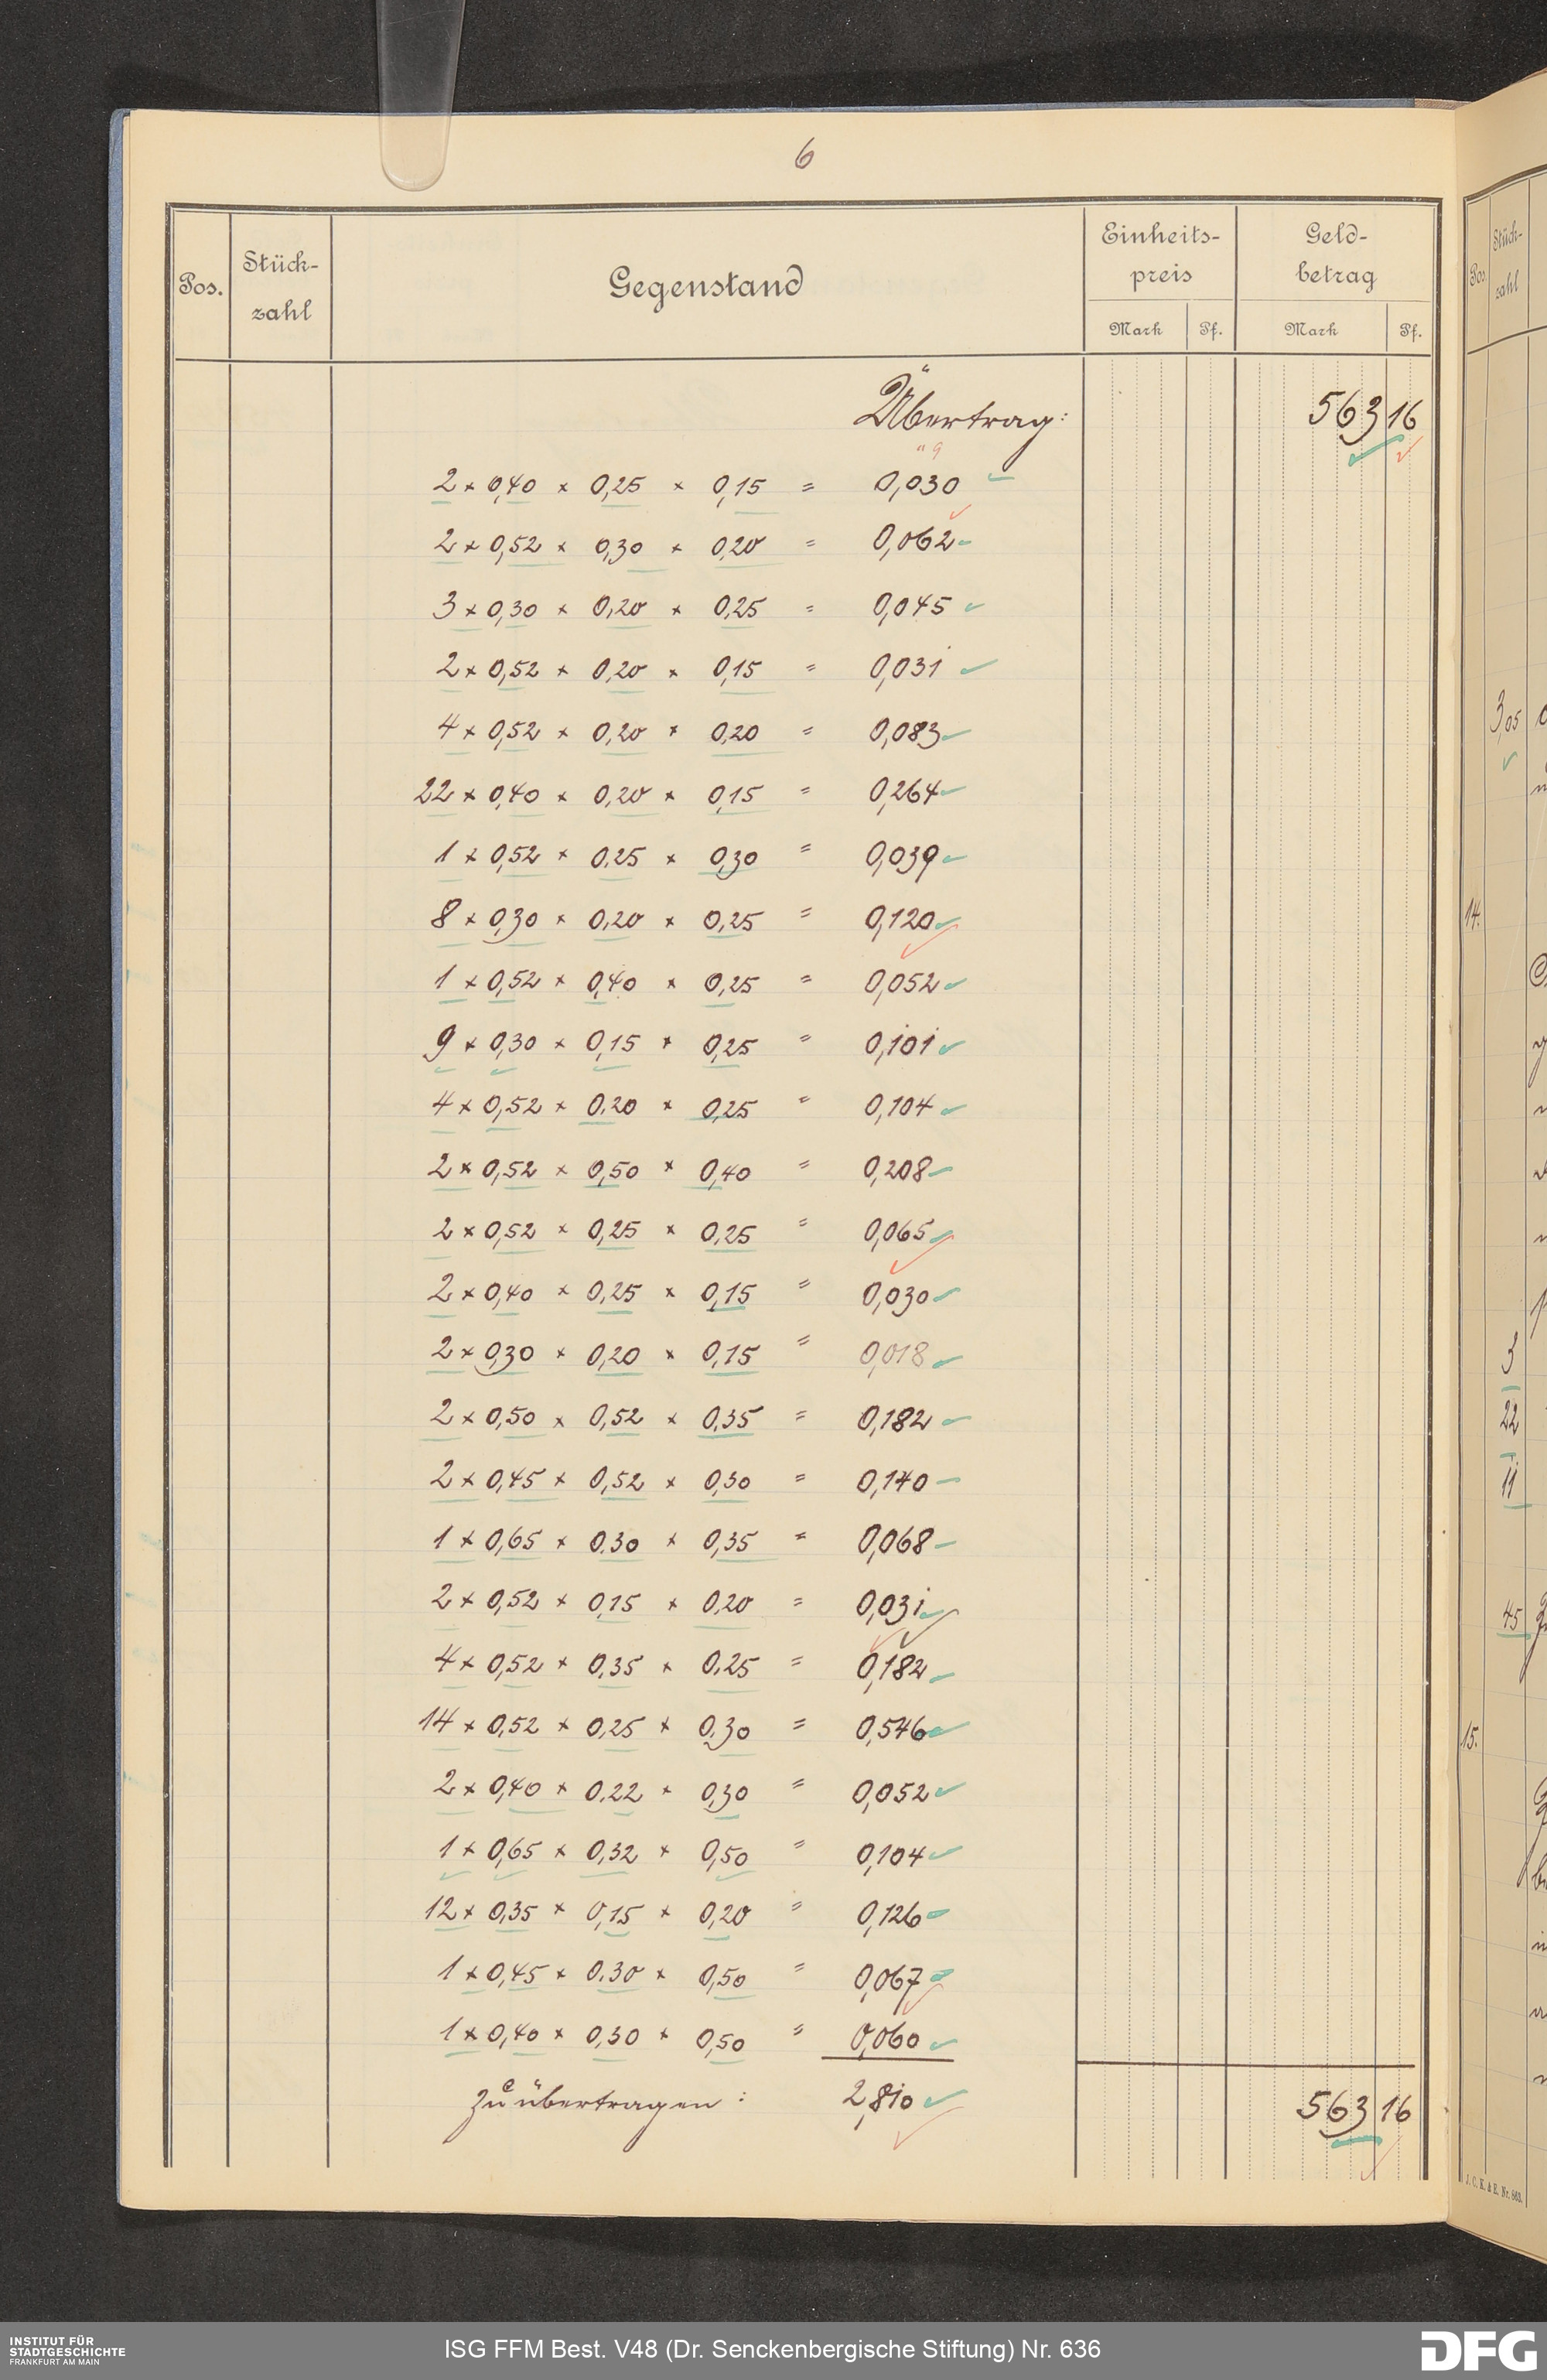 6
Pos. Stück-zahl Gegenstand Einheits-preis Geld-betrag
Mark Pf. Mark Pf.
Übertrag: 563 16
2 × 0,40 × 0,25 × 0,15 = 0,030
2 × 0,52 × 0,30 × 0,20 = 0,062
3 × 0,30 × 0,20 × 0,25 = 0,045
2 × 0,52 × 0,20 × 0,15 = 0,031
4 × 0,52 × 0,20 × 0,20 = 0,083
22 × 0,40 × 0,20 × 0,15 = 0,264
1 × 0,52 × 0,25 × 0,30 = 0,039
8 × 0,30 × 0,20 × 0,25 = 0,120
1 × 0,52 × 0,40 × 0,25 = 0,052
9 × 0,30 × 0,15 × 0,25 = 0,101
4 × 0,52 × 0,20 × 0,25 = 0,104
2 × 0,52 × 0,50 × 0,40 = 0,208
2 × 0,52 × 0,25 × 0,25 = 0,065
2 × 0,40 × 0,25 × 0,15 = 0,030
2 × 0,30 × 0,20 × 0,15 = 0,018
2 × 0,50 × 0,52 × 0,35 = 0,182
2 × 0,45 × 0,52 × 0,30 = 0,140
1 × 0,65 × 0,30 × 0,35 = 0,068
2 × 0,52 × 0,15 × 0,20 = 0,031
4 × 0,52 × 0,35 × 0,25 = 0,182
14 × 0,52 × 0,25 × 0,30 = 0,546
2 × 0,40 × 0,22 × 0,30 = 0,052
1 × 0,65 × 0,32 × 0,50 = 0,104
12 × 0,35 × 0,15 × 0,20 = 0,126
1 × 0,45 × 0,30 × 0,50 = 0,067
1 × 0,40 × 0,30 × 0,50 = 0,060
zu übertragen: 2,810 563 16
Pos. Stück-zahl
3,05
14.
3
22
11
45
15.
J. C. K. & E. Nr. 863.
INSTITUT FÜR
STADTGESCHICHTE
FRANKFURT AM MAIN
ISG FFM Best. V48 (Dr. Senckenbergische Stiftung) Nr. 636
DFG